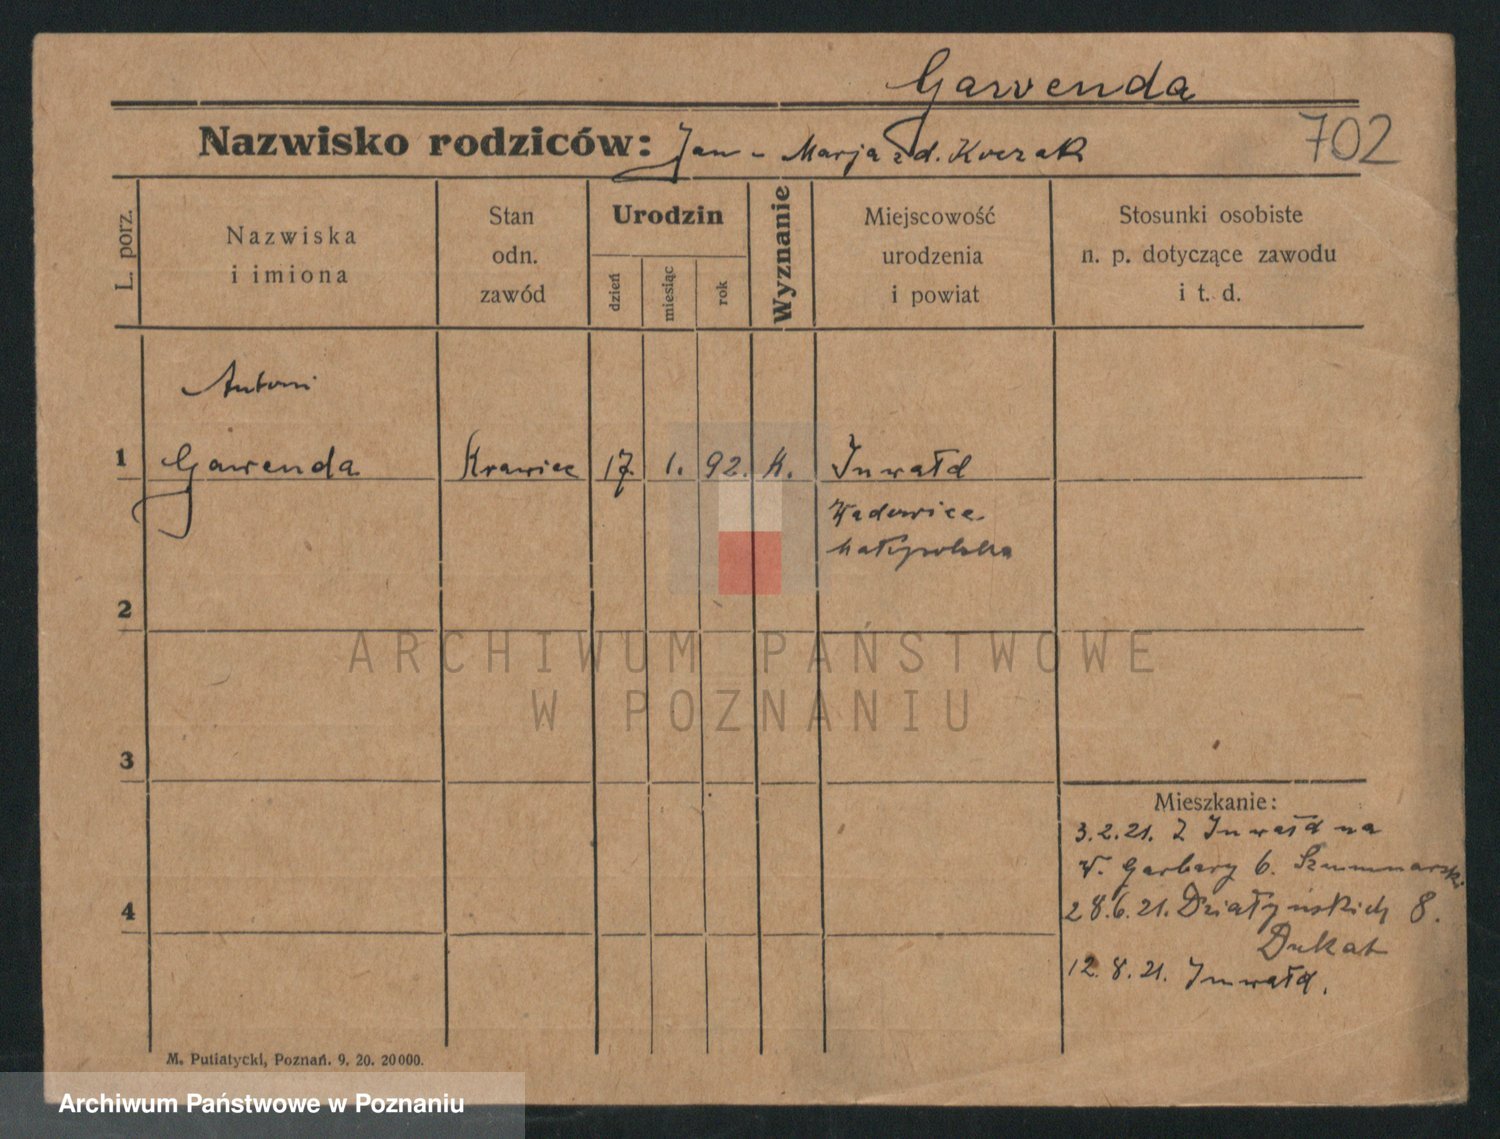 Gawenda
Nazwisko rodziców: Jan - Marja zd. Koczak
702
L. porz.
Nazwiska
i imiona
Stan
odn.
zawód
Urodzin
dzień
miesiąc
rok
Wyznanie
Miejscowość
urodzenia
i powiat
Stosunki osobiste
n. p. dotyczące zawodu
i t. d.
Antoni
1 Gawenda Krawiec 17. 1. 92. K. Inwałd
Wadowice
Małopolska
2
3
Mieszkanie:
3.2.21. Z Inwałd na
W. Garbary 6.
4
28.6.21. Działyńskich 8.
Dukat
12.8.21. Inwałd.
M. Putiatycki, Poznań. 9. 20. 20000.
ARCHIWUM PAŃSTWOWE
W POZNANIU
Archiwum Państwowe w Poznaniu